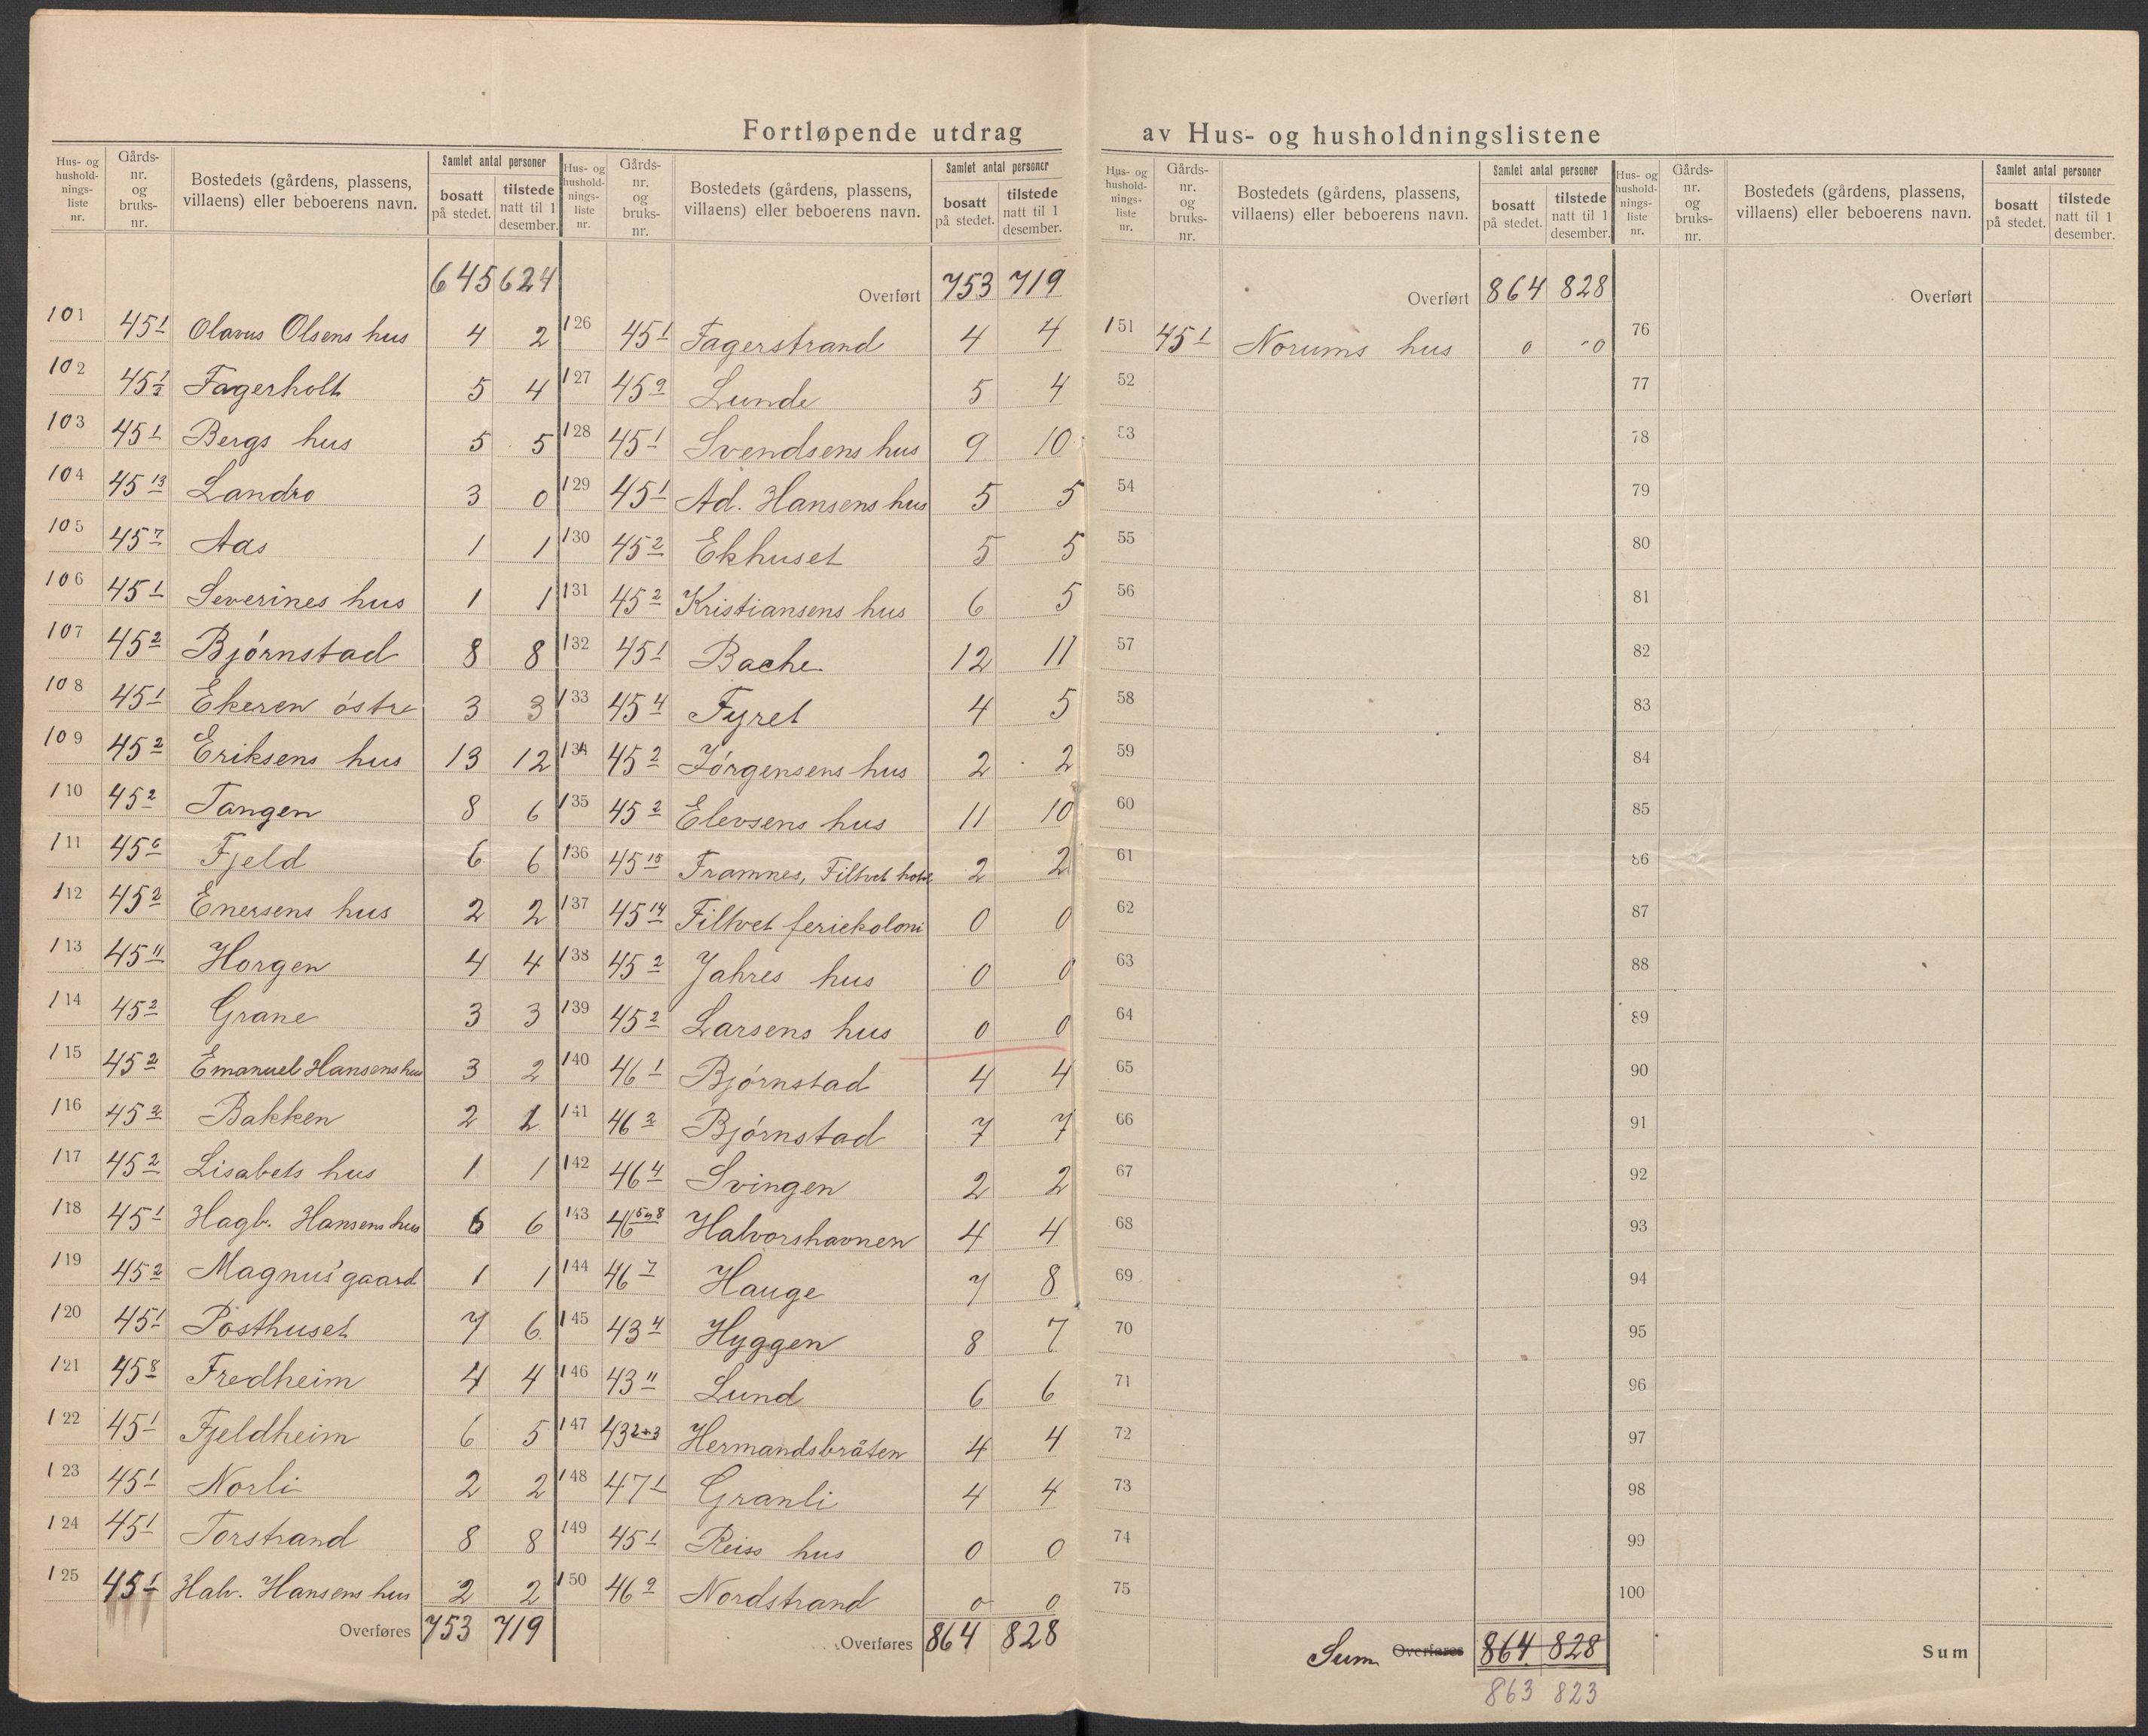 Fortløpende utdrag av Hus- og husholdningslistene
Hus- og husholdningsliste nr. | Gårds-nr. og bruks-nr. | Bostedets (gårdens, plassens, villaens) eller beboerens navn. | Samlet antal personer | bosatt på stedet. | tilstede natt til 1 desember.
645 624
101 45 1 Olavus Olsens hus 4 2
102 45 Fagerholt 5 4
103 45 1 Bergs hus 5 5
104 45 13 Landro 3 0
105 45 7 Aas 1 1
106 45 1 Severines hus 1 1
107 45 2 Bjørnstad 8 8
108 45 1 Ekeren östre 3 3
109 45 2 Eriksens hus 13 12
110 45 2 Tangen 8 6
111 45 6 Fjeld 6 6
112 45 2 Enersens hus 2 2
113 45 11 Horgen 4 4
114 45 2 Grane 3 3
115 45 2 Emanuel Hansens hus 3 2
116 45 2 Bakken 2 1
117 45 2 Lisabets hus 1 1
118 45 1 Hagb. Hansens hus 6 6
119 45 2 Magnus' gaard 1 1
120 45 1 Posthuset 7 6
121 45 8 Fredheim 4 4
122 45 1 Fjeldheim 6 5
123 45 1 Norli 2 2
124 45 1 Torstrand 8 8
125 45 1 Halv. Hansens hus 2 2
Overføres 753 719
Hus- og husholdningsliste nr. | Gårds-nr. og bruks-nr. | Bostedets (gårdens, plassens, villaens) eller beboerens navn. | Samlet antal personer | bosatt på stedet. | tilstede natt til 1 desember.
Overført 753 719
126 45 1 Fagerstrand 4 4
127 45 9 Lunde 5 4
128 45 1 Svendsens hus 9 10
129 45 1 Ad. Hansens hus 5 5
130 45 2 Ekhuset 5 5
131 45 2 Kristiansens hus 6 5
132 45 1 Bache 12 11
133 45 4 Fyret 4 5
134 45 2 Jörgensens hus 2 2
135 45 2 Elevsens hus 11 10
136 45 Framnes, Filtvet hotel 2 2
137 45 14 Filtvet feriekoloni 0 0
138 45 2 Jahres hus 0 0
139 45 2 Larsens hus 0 0
140 46 1 Bjørnstad 4 4
141 46 2 Bjørnstad 7 7
142 46 4 Svingen 2 2
143 46 Halvorshavnen 4 4
144 46 7 Hauge 7 8
145 43 4 Hyggen 8 7
146 43 11 Lund 6 6
147 43 2+3 Hermandsbråten 4 4
148 47 1 Granli 4 4
149 45 1 Reiss hus 0 0
150 46 9 Nordstrand 0 0
Overføres 864 828
Hus- og husholdningsliste nr. | Gårds-nr. og bruks-nr. | Bostedets (gårdens, plassens, villaens) eller beboerens navn. | Samlet antal personer | bosatt på stedet. | tilstede natt til 1 desember.
Overført 864 828
151 45 1 Norums hus 0 0
52
53
54
55
56
57
58
59
60
61
62
63
64
65
66
67
68
69
70
71
72
73
74
75
Sum Overføres 864 828
863 823
Hus- og husholdningsliste nr. | Gårds-nr. og bruks-nr. | Bostedets (gårdens, plassens, villaens) eller beboerens navn. | Samlet antal personer | bosatt på stedet. | tilstede natt til 1 desember.
Overført
76
77
78
79
80
81
82
83
84
85
86
87
88
89
90
91
92
93
94
95
96
97
98
99
100
Sum